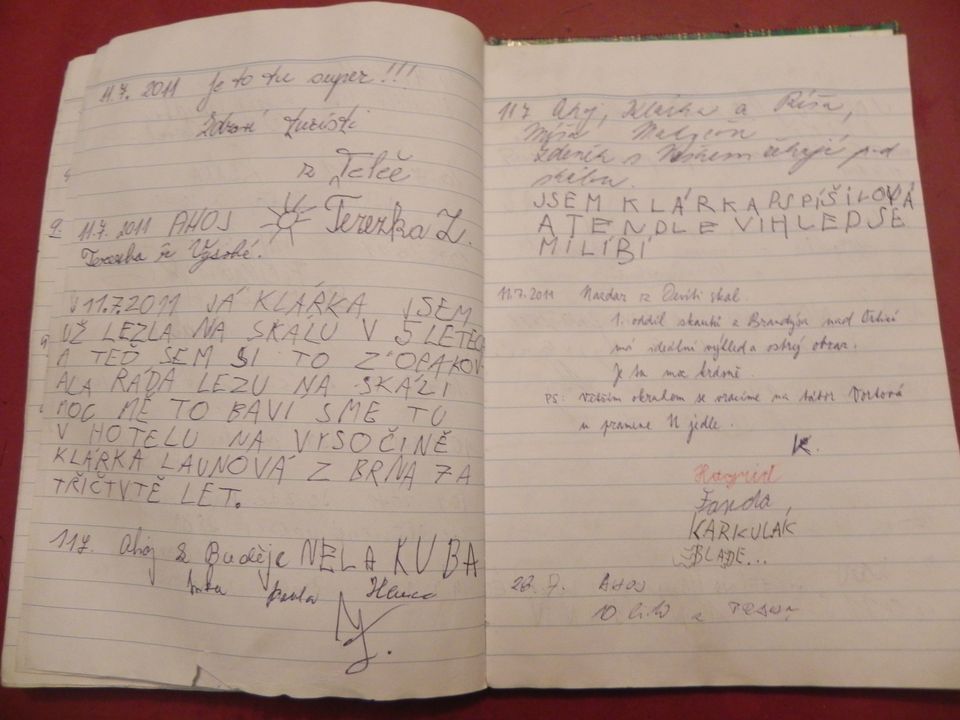 11.7. 2011 Je to tu super!!!
Zdraví turisti
z Telče
11.7. 2011 AHOJ Terezka Z.
Terezka z Vysoké.
11.7.2011 JÁ KLÁRKA JSEM
UŽ LEZLA NA SKÁLU V 5 LETECH
A TEĎ SEM SI TO Z'OPAKOV
ALA RÁDA LEZU NA SKÁLI
MOC MĚ TO BAVÍ SME TU
V HOTELU NA VYSOČINĚ
KLÁRKA LAUNOVÁ Z BRNA 7 A
TŘIČTVTĚ LET.
11.7. Ahoj z Buděje NELA KUBA
Pavla Hanka
11.7. Ahoj, Klárka a Ríša,
Míša
Zdeněk s čekají pod
skálou.
JSEM KLÁRKA PSPÍŠILOVÁ
A TENDLE VIHLED SE
MI LÍBÍ
11.7.2011 Nazdar z Devíti skal.
1. oddíl skautů z Brandýsa nad Orlicí
má ideální výhled a ostrý obraz.
Je tu moc krásně.
PS: Větším obchodem se vracíme na tábor Vortová
u pramene U jedle.
K.
Hagrid
Fanda,
KARKULÁK
BLADE...
22. 7. AHOJ